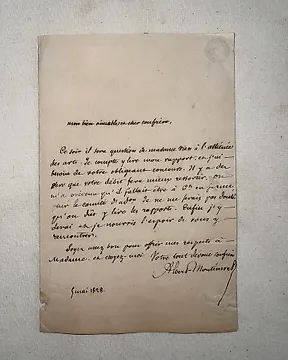 mon bien aimable et cher confrère,
Ce soir il sera question de madame à l'athénée
des arts. Je compte y lire mon rapport, et j'ai
besoin de votre obligeant concours. Il y a
que votre débit fera mieux ressortir, on
m'a prévenu qu'il fallait être à 8h en
sur le comité d'abor. Je ne me ferai pas
qu'on dût y lire les rapports. Enfin, j'y
serai et je nourris l'espoir de vous y
rencontrer.
Soyez assez bon pour offrir mes respects à
Madame, et croyez-moi Votre tout dévoué confrère
Albert-Montémont
5 mai 1828.